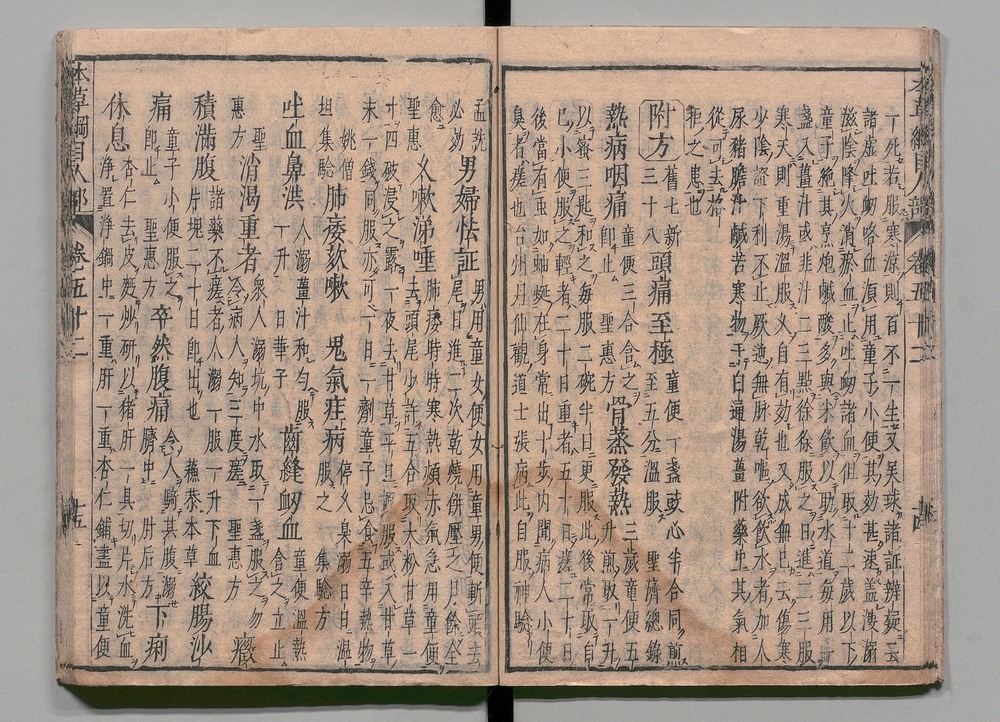 本草綱目人部 卷五十二 十四
一死若服寒涼則百不一生又吳球諸証辨疑云
諸虛吐衂咯血須用童子小便其効甚速蓋溲溺
滋陰降火消瘀血止吐衂諸血但取十二歲以下
童子絶其烹炮鹹酸多與米飲以助水道每用一
盞入薑汁或韭汁二三點徐徐服之日進二三服
寒天則重湯溫服久自有効也又成無已云傷寒
少陰證下利不止厥逆無脉乾嘔欲飲水者加人
尿猪膽汁鹹苦寒物于白通湯薑附藥中其氣相
從可去格
拒之患也
附方 舊七新三十八 頭痛至極 童便一盞豉心半合同煎至五分溫服 聖濟總錄
熱病咽痛 童便三合含之即止 聖惠方 骨蒸發熱 三歲童便五升煎取一升
以蜜三匙和之每服二碗半日更服此後常取自
已小便服之輕者二十日重者五十日瘥二十日
後當有虫如蚰蜒在身常出十步內聞病人小便
臭者瘥也台州丹仙觀道士張病此自服神驗
孟詵必効 男婦怯証 男用童女便女用童男便斬頭去尾日進二次乾燒餅壓之月餘全
愈 聖惠 久嗽涕唾 肺痿時時寒熱頰赤氣急用童便去頭尾少許五合取大粉甘草一
寸四破浸之露一夜去甘草平旦頓服或入甘草
末一錢同服亦可一日一劑童子忌食五辛熱物
姚僧坦集驗 肺痿欬嗽 鬼氣疰病 停久臭溺日日溫服之 集驗方
吐血鼻洪 人溺薑汁和勻服一升 日華子 齒縫衂血 童便溫熱含之立止
聖惠方 消渴重者 衆人溺坑中水取一盞服之勿令病人知三度瘥 聖惠方 癥
積滿腹 諸藥不瘥者人溺一服一升下血片塊二十日即出也 蘓恭本草 絞腸沙
痛 童子小便服之即止 聖惠方 卒然腹痛 令人騎其腹溺臍中 肘后方 下痢
休息 杏仁去皮麩炒研以猪肝一具切片水洗血净置净鍋中一重肝一重杏仁鋪盡以童便
本草綱目人部 卷五十二 十五